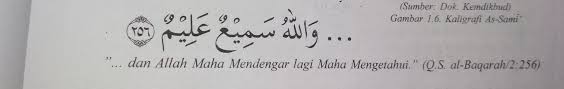 (Sumber: Dok. Kemdikbud)
Gambar 1.6. Kaligrafi As-Samī'
... وَاللّٰهُ سَمِيْعٌ عَلِيْمٌ ٢٥٦
"... dan Allah Maha Mendengar lagi Maha Mengetahui." (Q.S. al-Baqarah/2:256)